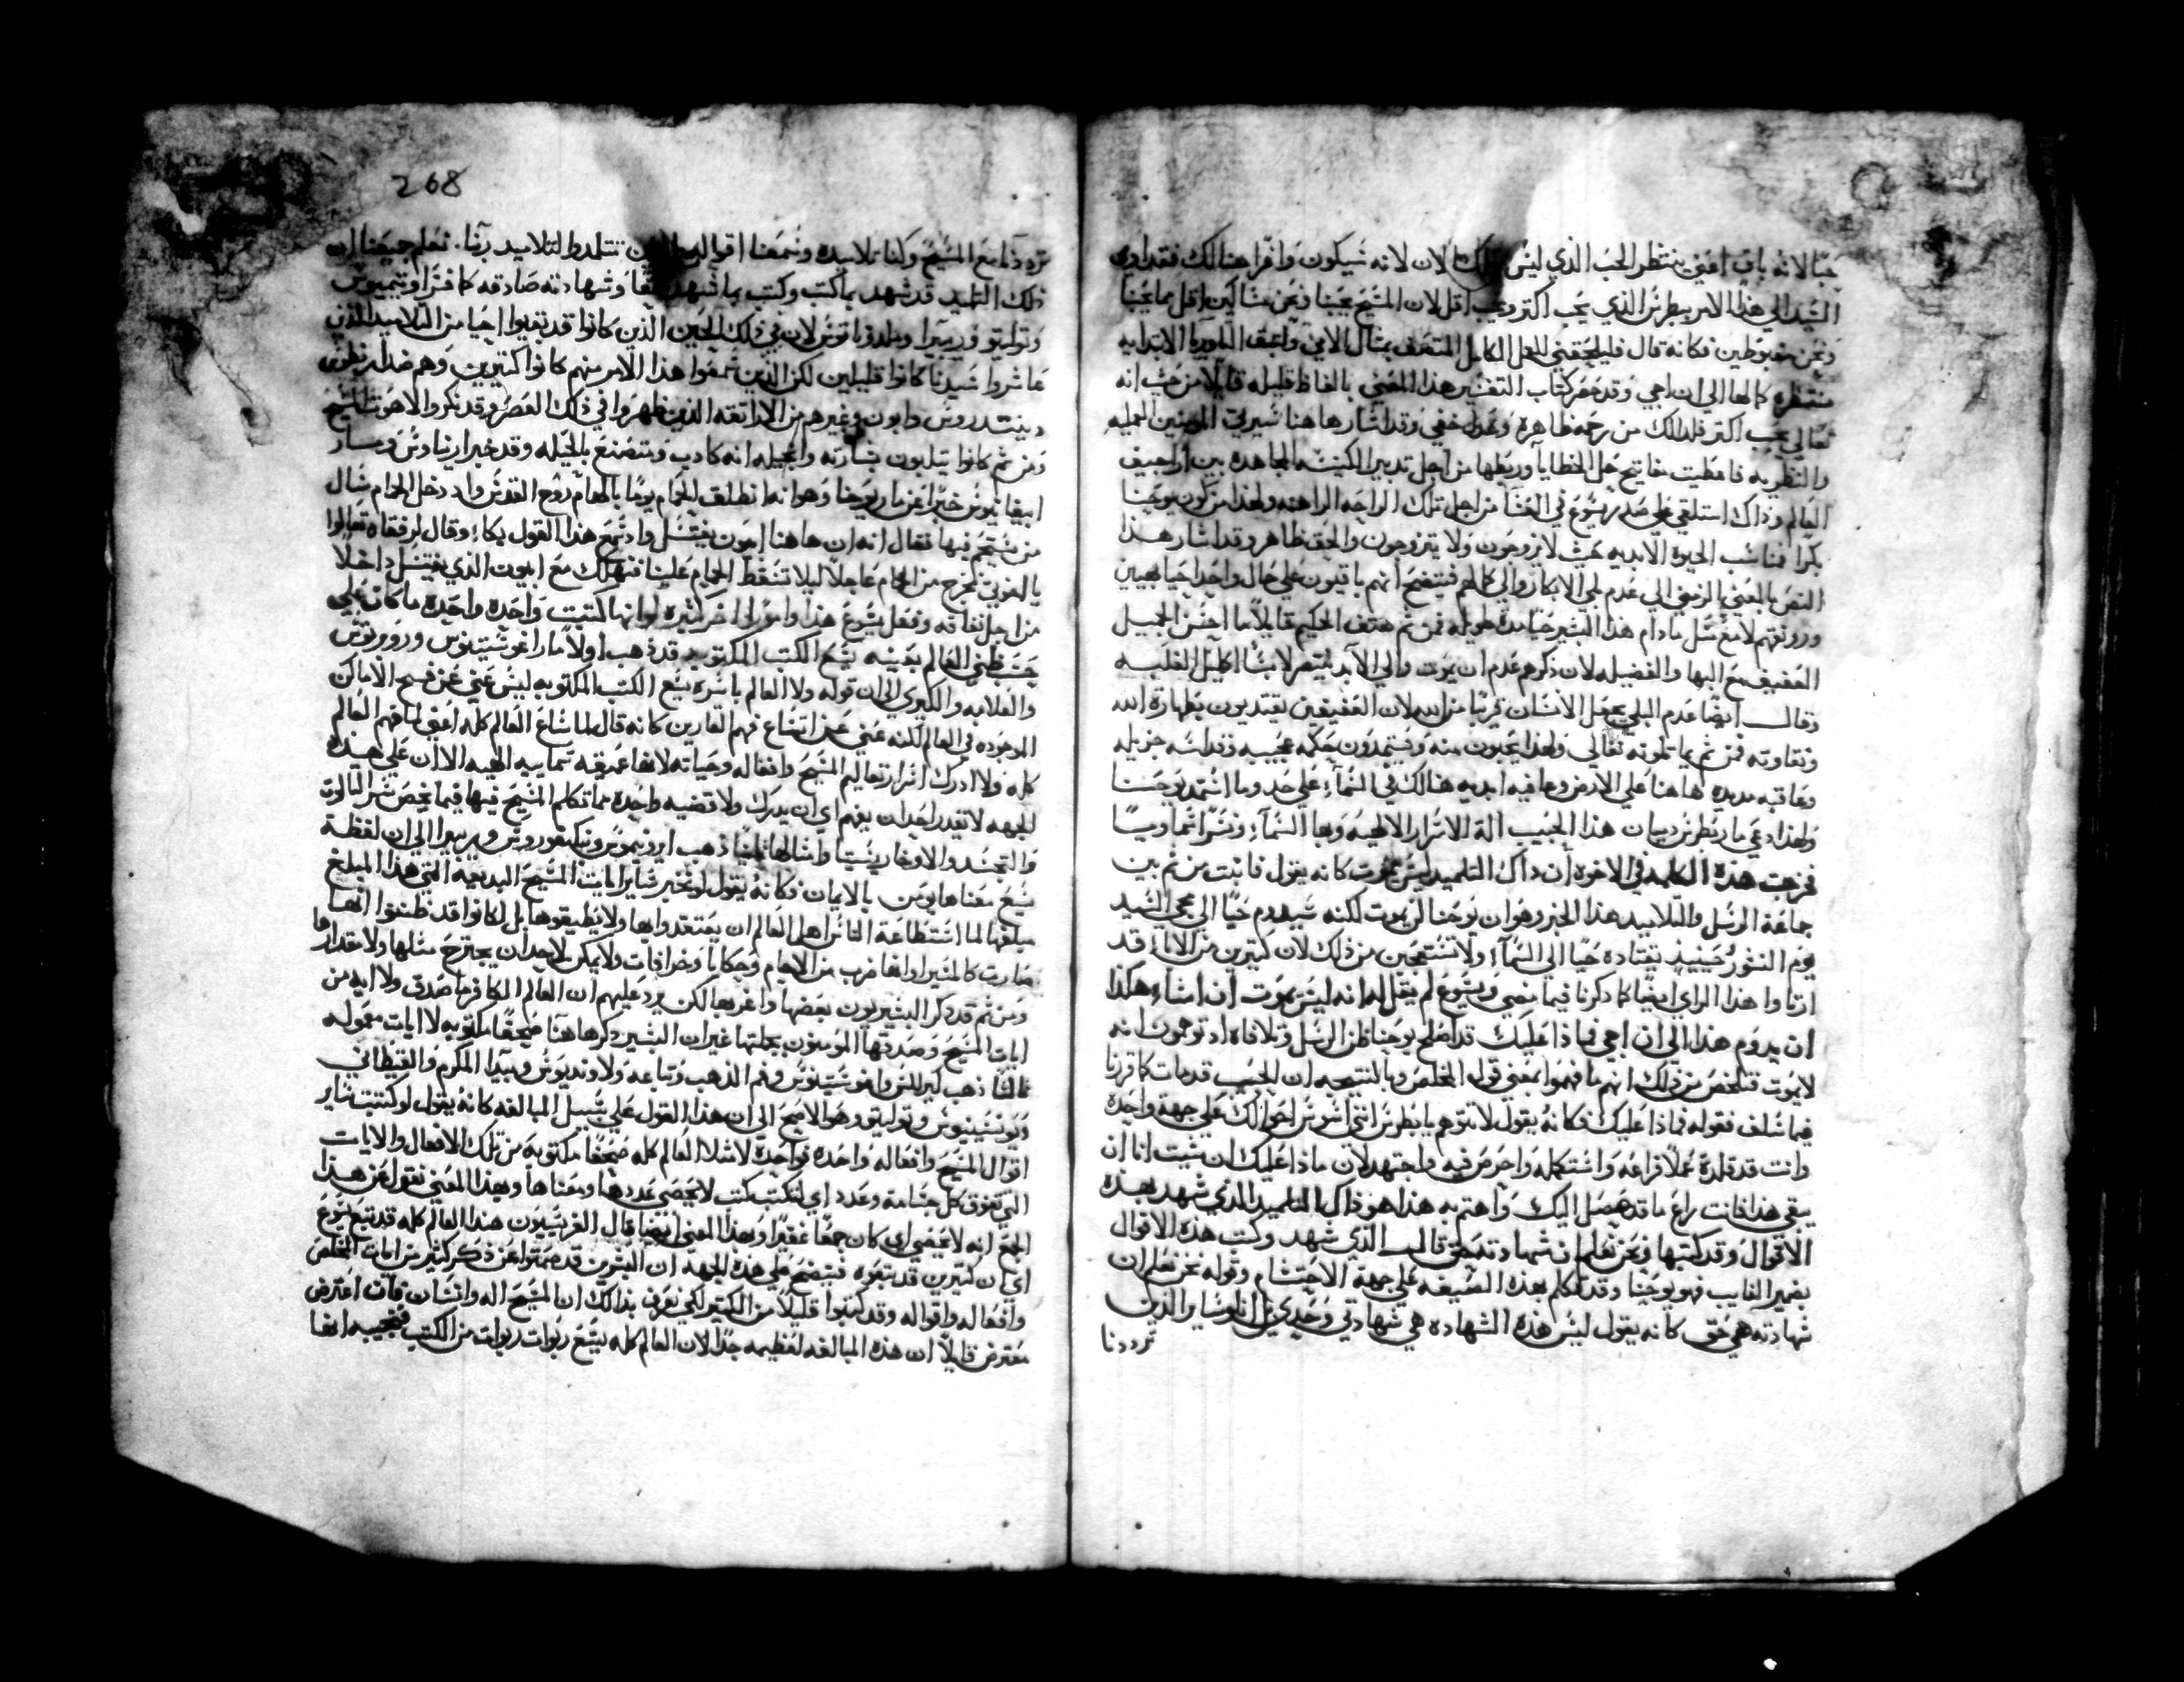 حبا لانه باق اعني ينتظر الحب الذي ليس الان لانه سيكون وافرا هنالك فقد اوري
السيد الي هذا الامر بطرس الذي يحب اكتر ويحب اقل لان المسيح يحبنا ونحن مساكين اقل مما يحبنا
ونحن مغبوطين فكانه قال فليلحقني العمل الكامل المتصف بمثال الامي واعيق التاوريا الابتدايه
منتظره كمالها الي ان اجي وقد حصر كتاب التفسير هذا المعني بالفاظ قليله قايلا من حيث انه
تعالي يحب اكتر فلذلك من رحمه ظاهره وعدل خفي وقد اشار ها هنا سيرتي المومنين العمليه
والنظريه فاعطيت مفاتيح حل الخطايا وربطها من اجل تدبير الكنيسه المجاهده بين اراجيف
العالم وذاك استلقي علي صدر يسوع في العشا من اجل تلك الراحه الراهنه ولهذا من كون يوحنا
بكرا فناسب الحيوه الابديه حيث لا يزوجون ولا يتزوجون والحق ظاهر وقد اشار هذا
النص بالمعني الرمزي الي عدم بلي الابكار والي كمالهم فيتضح انهم باقيون علي حال واحد احيا بهيين
ورونقهم لا يغسل مادام هذا البشير حيا مده طويله فمن ثم هتف الحكيم قايلا ما احسن الجميل
العفيف مع البها والفضيله لان ذكرهم عدم ان يموت والي الابد ينتصر لابسا اكليل الغلبه
وقال ايضا عدم البلي يجعل الانسان قريبا من الله لان العفيفين يقتديون بطهارة الله
ونقاوته فمن ثم يماتلونه تعالي ولهذا يحبون منه ويستمدون حكمه عجيبه وقداسه جزيله
وعاقبه مديده ها هنا علي الارض وعافيه ابديه هنالك في السماء علي حد وما استمد يوحنا
ولهذا دعي مار بطرس دميان هذا الحبيب الة الاسرار الالهيه وبها السماء ونسرا سماويا
فخرجت هذه الكلمه في الاخوه ان ذاك التلميد ليس يموت كانه يقول فانبت من ثم بين
جماعة الرسل والتلاميد هذا الخبر وهو ان يوحنا لن يموت لكنه سيدوم حيا الي مجي السيد
يوم النشور حينيد يقتاده حيا الي السماء ولا تستعجبن من ذلك لان كتيرين من الاباء قد
ارتاوا هذا الراي ايضا كما ذكرنا فيما مضي ويسوع لم يقل له انه ليس يموت ان اشاء هكذا
ان يدوم هذا الي ان اجي فماذا عليك قد اصلح يوحنا ظن الرسل وتلافاه اد توهموا انه
لا يموت فتلخص من ذلك انهم ما فهموا بمعني قول المخلص وبالنتيجه ان الحبيب قد مات كما قررنا
فيما سلف فقوله فماذا عليك فكانه يقول لا تتوهم يا بطرس انني اسوس احوالك علي جهة واحده
وانت قد قلدة عملا فراعه واستكمله واحرص فيه واجتهد لان ماذا عليك ان شيت انا ان
يبقي هذا فانت راع ما قد حصل اليك واهتم به هذا هو ذاك التلميد الذي شهد بهذه
الاقوال وقد كتبها ونحن نعلم ان شهادته حق قالب الذي شهد وكتب هذه الاقوال
بضمير الغايب فهو يوحنا وقد تكلم بهذه الصيغه علي جهة الاحتشام وقوله نحن نعلم ان
شهادته هي حق كانه يقول ليس هذه الشهاده هي شهادتي وحدي بل انا وساير الذين
ترددنا
268
ترددنا مع المسيح وكنا تلاميده وسمعنا اقواله تتلمدوا لتلاميد ربنا نعلم جميعنا ان
ذلك التلميد قد شهد بما كتب وكتب بما شهد حقا وشهادته صادقه كما فسر اوتيميوس
وتواليتو وريبيرا ومالدوناتوس لان في ذلك الحين الذين كانوا قد بقيوا احيا من التلاميد الذين
عاشروا سيدنا كانوا قليلين لكن الذين سمعوا هذا الامر منهم كانوا كتيرين وهم ضد كرنطوس
ومن ثم كانوا يتلبون بشارته وانجيله انه كادب وتصنع بالحيله وقد خبر ارناوس وسار
ابيفانيوس خبرا عن مار يوحنا وهو انه انطلق للحمام يوما بالهام روح القدس واد دخل الحمام سال
من يستحم فيها فقال انه ان ها هنا ابيون يغتسل واد سمع هذا القول بكاء وقال لرفقاه تعالوا
يا اخوتي نخرج من الحمام عاجلا ليلا تسقط الحمام علينا فنهلك مع ابيون الذي يغتسل داخلا
من اجل نفاقه وفعل يسوع هذا وامورا اخر كتيره لو انها كتبت واحده واحده ما كان علي
حسب ظني العالم بدينه يسع الكتب المكتوبه قد ذهب اولا مار اغوستينوس وروبرتوس
والعلامه والكبرى الي ان قوله ولا العالم باسره يسع الكتب المكتوبه ليس عني عن فسح الاماكن
الموجوده في العالم لكنه عني عن اتساع فهم القارين كانه قال لما ساغ العالم كله اعني لما فهم العالم
كله ولا ادرك اسرار تعاليم المسيح وافعاله وحياته لانها عميقه سماييه الهيه الا ان علي هذه
الجهه لا يقدر احد ان يفهم اي ان يدرك ولا قضيه واحده مما تكلم المسيح فيها فيما يخص سر التالوت
والتجسد والاوخارستيا وامثالها تانيا ذهب ايرونيموس ونيكيفوروس وريبيرا الي ان لفظة
يسع معناها يومن بالايمان فكانه يقول لو تخبر ساير ايات المسيح البديعه التي هذا المبلغ
مبلغها لما استطاعة الناس اهل العالم ان يعتقدوا بها ولا يطيقوها بل لكانوا قد ظنوا انها
صارت كالمنيرا وانها ضرب من الاوهام وحكايا وخرافات ولا يمكن لاحد ان يجترح متلها ولا مقدارها
ومن ثم قد ذكر البشيريون بعضها واغربها لكن يرد عليهم ان العالم الكافر ما صدق ولا ايه من
ايات المسيح وصدقها المومنون بجملتها غير ان البشير ذكرها هنا صحفا مكتوبه لا ايات معموله
تالثا ذهب كيرللس واغوستينوس وفم الذهب وتباعه ولاونديوس وبيدا المكرم والغيطاني
وتواليتو وهو الاصح الي ان هذا القول علي سبيل المبالغه كانه يقول لو كتبت ساير
اقوال المسيح وافعاله واحده فواحدة لامتلا العالم كله صحفا مكتوبه من تلك الافعال والايات
التي تفوق كل جسامة وعدد اي لتكتب كتب لا يحصي عددها ومعناها وبهذا المعني نقول عن هذا
الجمع انه لا يحصي اي كان جمعا غفيرا وبهذا المعني ايضا قال الفريسيون هذا العالم كله قد تبع يسوع
اي ان كتيرين قد تبعوه فيتضح علي هذه الجهه ان البشرين قد صمتوا عن ذكر كتير من ايات المخلص
وافعاله واقواله وقد كتبوا قليلا من الكتير لكي نعرف بذالك ان المسيح اله وانسان فان اعترض
معترض قايلا ان هذه المبالغه لعظيمه جدا لان العالم كله يسع ربوات ربوات من الكتب فنجيبه انها